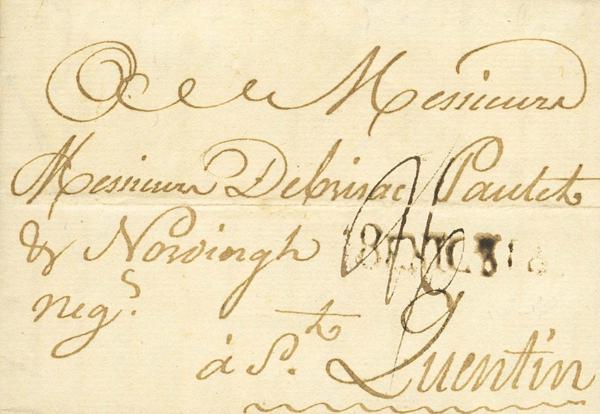 A Messieurs
Messieurs Debrissac Pautet
& Norvingh
neg.s
à St. Quentin